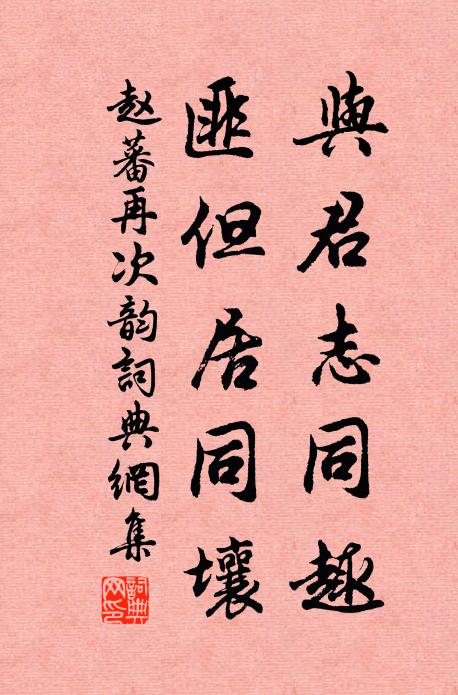 與君志同趣
匪但居同壤
赵蕃再次韵詞典網集
詞典
网印